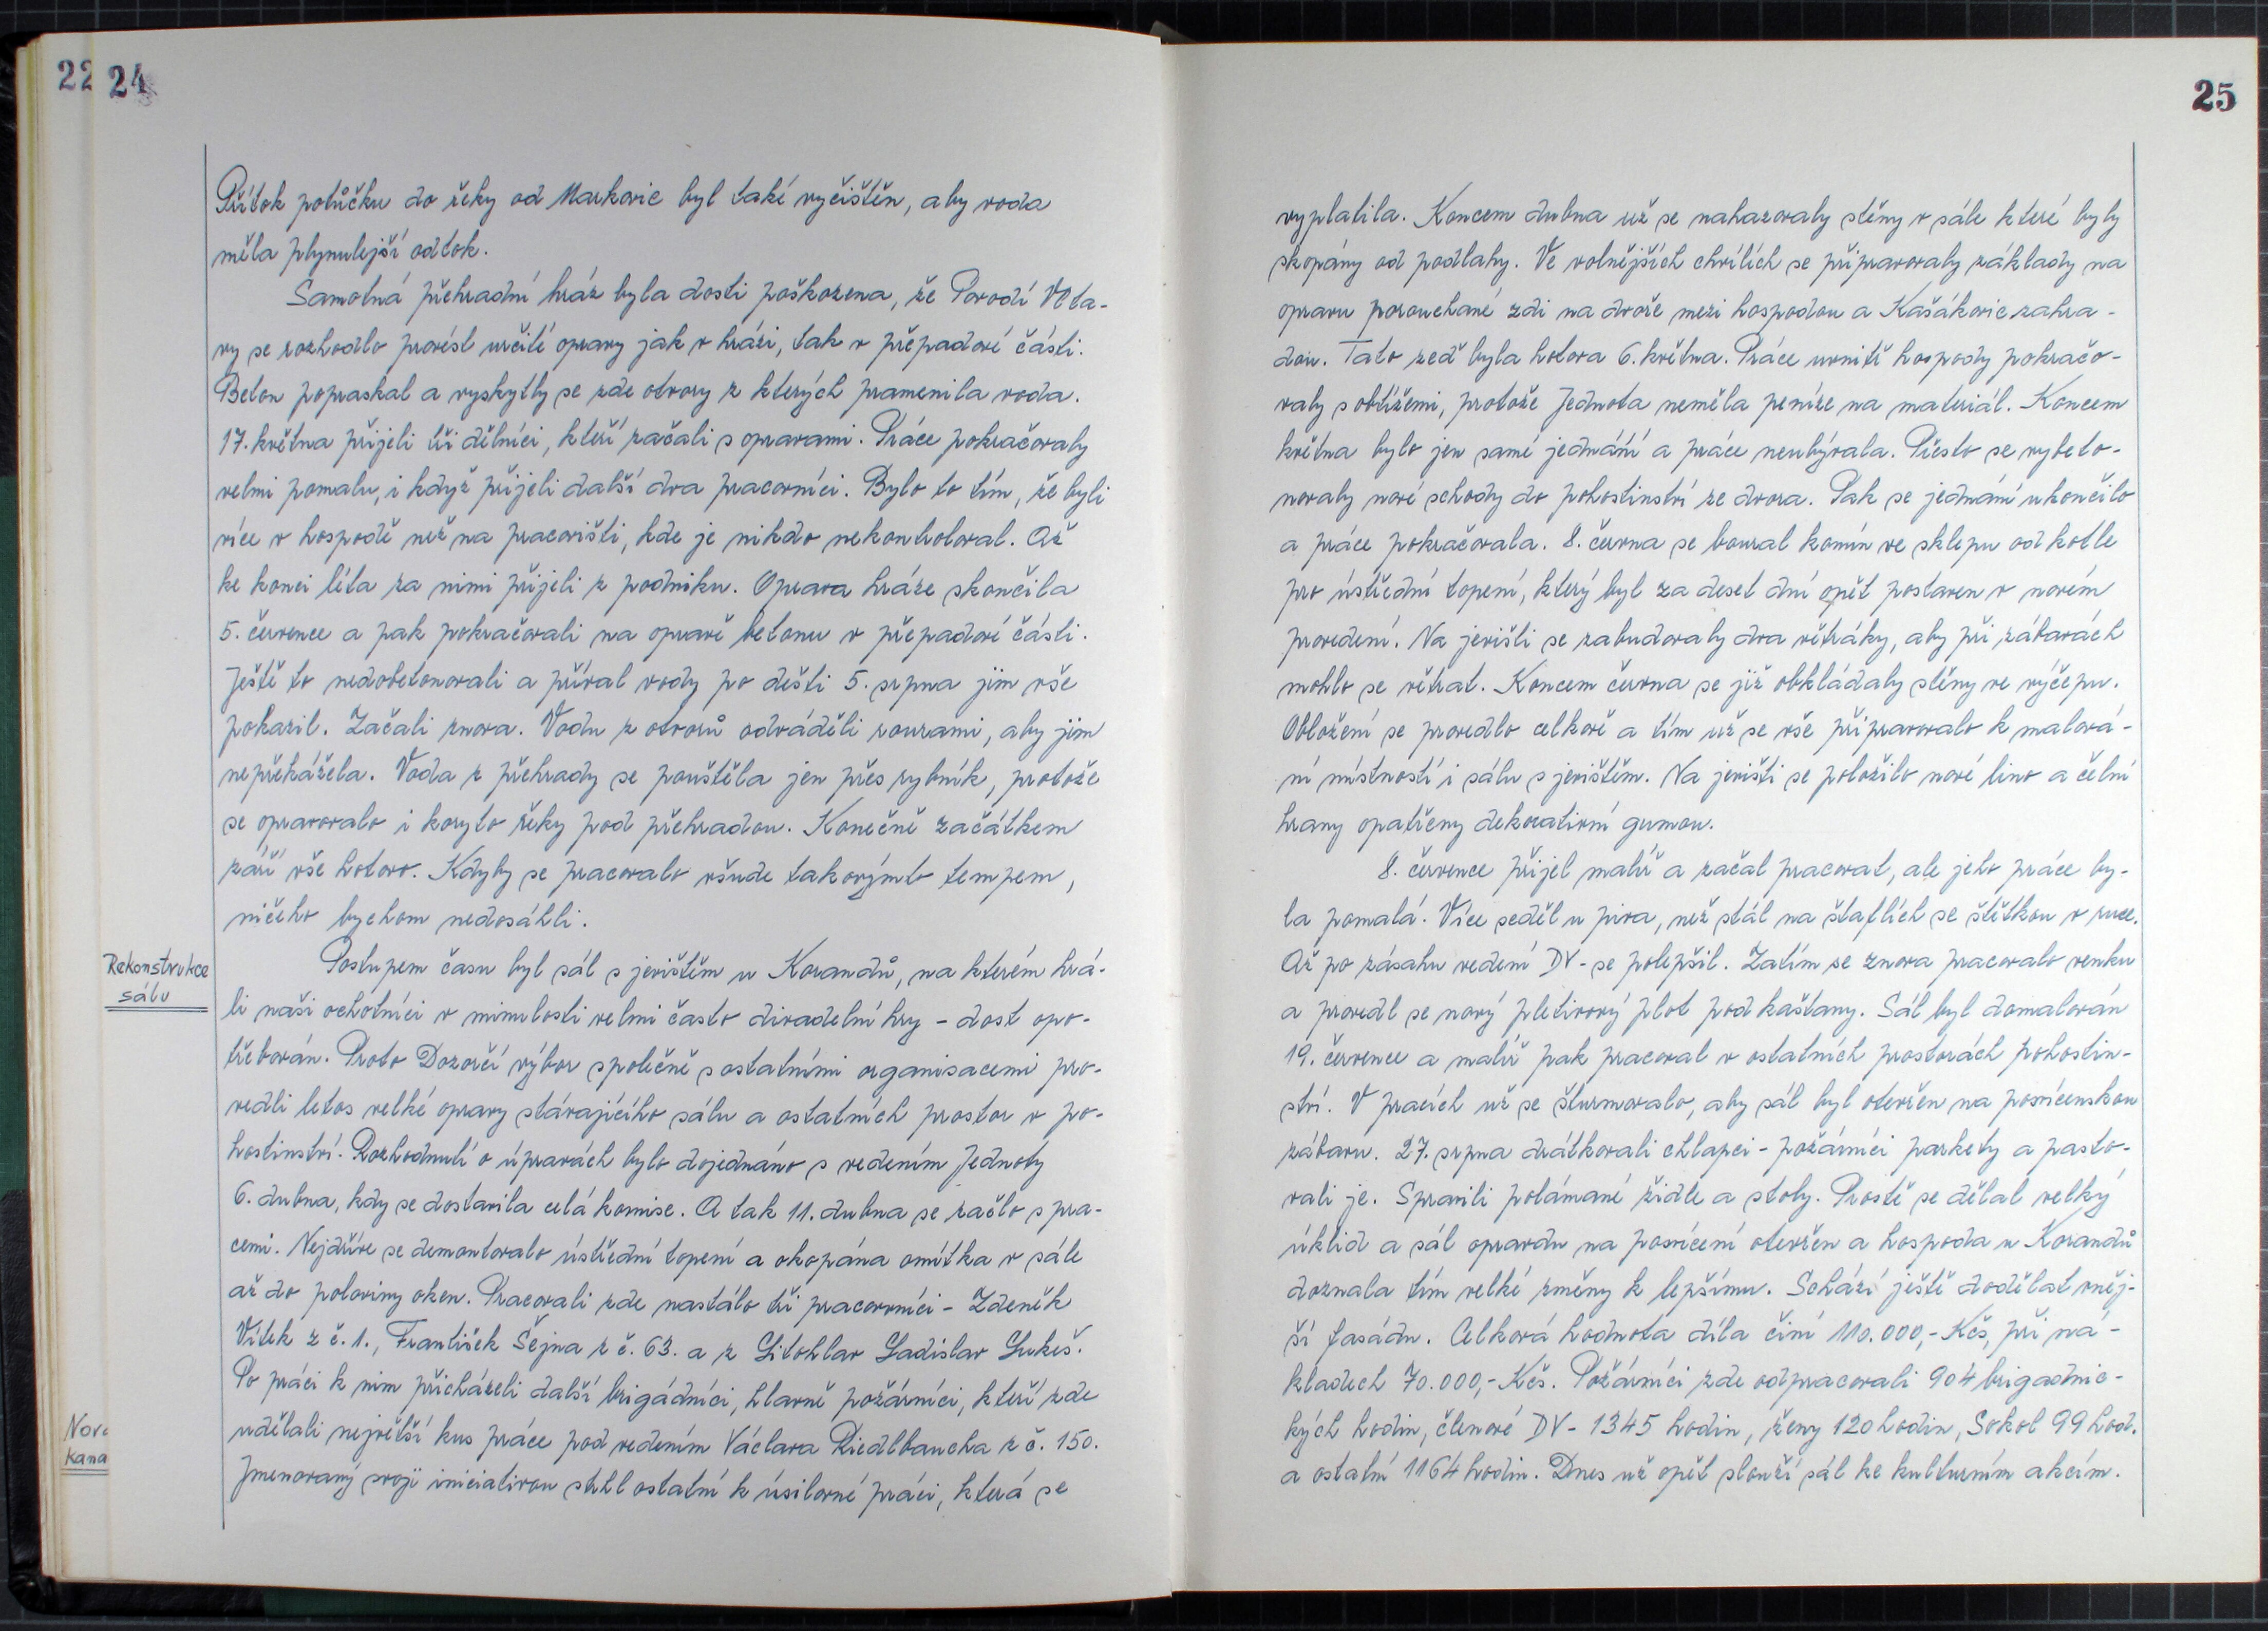 22 24
Přítok potůčku do řeky od Markovic byl také vyčištěn, aby voda
měla plynulejší odtok.
Samotná přehradní hráz byla dosti poškozena, že Povodí Vlta-
vy se rozhodlo provést určité opravy jak v hrázi, tak v přepadové části.
Beton popraskal a vyskytly se zde otvory z kterých pramenila voda.
17. května přijeli tři dělníci, kteří začali s opravami. Práce pokračovaly
velmi pomalu, i když přijeli další dva pracovníci. Bylo to tím, že byli
více v hospodě než na pracovišti, kde je nikdo nekontroloval. Až
ke konci léta za nimi přijeli z podniku. Oprava hráze skončila
5. července a pak pokračovali na opravě betonu v přepadové části.
Ještě to nedobetonovali a příval vody po dešti 5. srpna jim vše
pokazil. Začali znova. Vodu z otvorů odváděli rourami, aby jim
nepřekážela. Voda z přehrady se pouštěla jen přes rybník, protože
se opravovalo i koryto řeky pod přehradou. Konečně začátkem
září vše hotovo. Kdyby se pracovalo všude takovýmto tempem,
ničeho bychom nedosáhli.
Rekonstrukce
sálu
Postupem času byl sál s jevištěm u Korandů, na kterém hrá-
li naši ochotníci v minulosti velmi často divadelní hry - dost opo-
třebován. Proto Dozorčí výbor společně s ostatními organisacemi pro-
vedli letos velké opravy stávajícího sálu a ostatních prostor v po-
hostinství. Rozhodnutí o úpravách bylo dojednáno s vedením Jednoty
6. dubna, kdy se dostavila celá komise. A tak 11. dubna se začlo s pra-
cemi. Nejdříve se demontovalo ústřední topení a okopána omítka v sále
až do poloviny oken. Pracovali zde nastálo tři pracovníci - Zdeněk
Vítek z č. 1., František Šejna z č. 63. a z Litohlav Ladislav Lukeš.
Po práci k nim přicházeli další brigádníci, hlavně požárníci, kteří zde
udělali největší kus práce pod vedením Václava Riedlbaucha z č. 150.
Jmenovaný svojí iniciativou strhl ostatní k úsilovné práci, která se
Nov
kana
25
vyplatila. Koncem dubna už se nahazovaly stěny v sále které byly
skopány od podlahy. Ve volnějších chvílích se připravovaly základy na
opravu porouchané zdi na dvoře mezi hospodou a Kašákovic zahra-
dou. Tato zeď byla hotova 6. května. Práce uvnitř hospody pokračo-
valy s obtížemi, protože Jednota neměla peníze na materiál. Koncem
května bylo jen samé jednání a práce neubývala. Přesto se vybeto-
novaly nové schody do pohostinství ze dvora. Pak se jednání ukončilo
a práce pokračovala. 8. června se boural komín ve sklepu od kotle
pro ústřední topení, který byl za deset dní opět postaven v novém
provedení. Na jevišti se zabudovaly dva větráky, aby při zábavách
mohlo se větrat. Koncem června se již obkládaly stěny ve výčepu.
Obložení se provedlo celkově a tím už se vše připravovalo k malová-
ní místností i sálu s jevištěm. Na jevišti se položilo nové lino a čelní
hrany opatřeny dekorativní gumou.
8. července přijel malíř a začal pracovat, ale jeho práce by-
la pomalá. Více seděl u piva, než stál na štaflích se štětkou v ruce.
Až po zásahu vedení DV - se polepšil. Zatím se znova pracovalo venku
a provedl se nový pletivový plot pod kaštany. Sál byl domalován
19. července a malíř pak pracoval v ostatních prostorách pohostin-
ství. V pracích už se šturmovalo, aby sál byl otevřen na posvícenskou
zábavu. 27. srpna drátkovali chlapci - požárníci parkety a pasto-
vali je. Spravili polámané židle a stoly. Prostě se dělal velký
úklid a sál opravdu na posvícení otevřen a hospoda u Korandů
doznala tím velké změny k lepšímu. Schází ještě dodělat vněj-
ší fasádu. Celková hodnota díla činí 110.000,- Kčs, při ná-
kladech 70.000,- Kčs. Požárníci zde odpracovali 904 brigadnic-
kých hodin, členové DV - 1345 hodin, ženy 120 hodin, Sokol 99 hod.
a ostatní 1164 hodin. Dnes už opět slouží sál ke kulturním akcím.